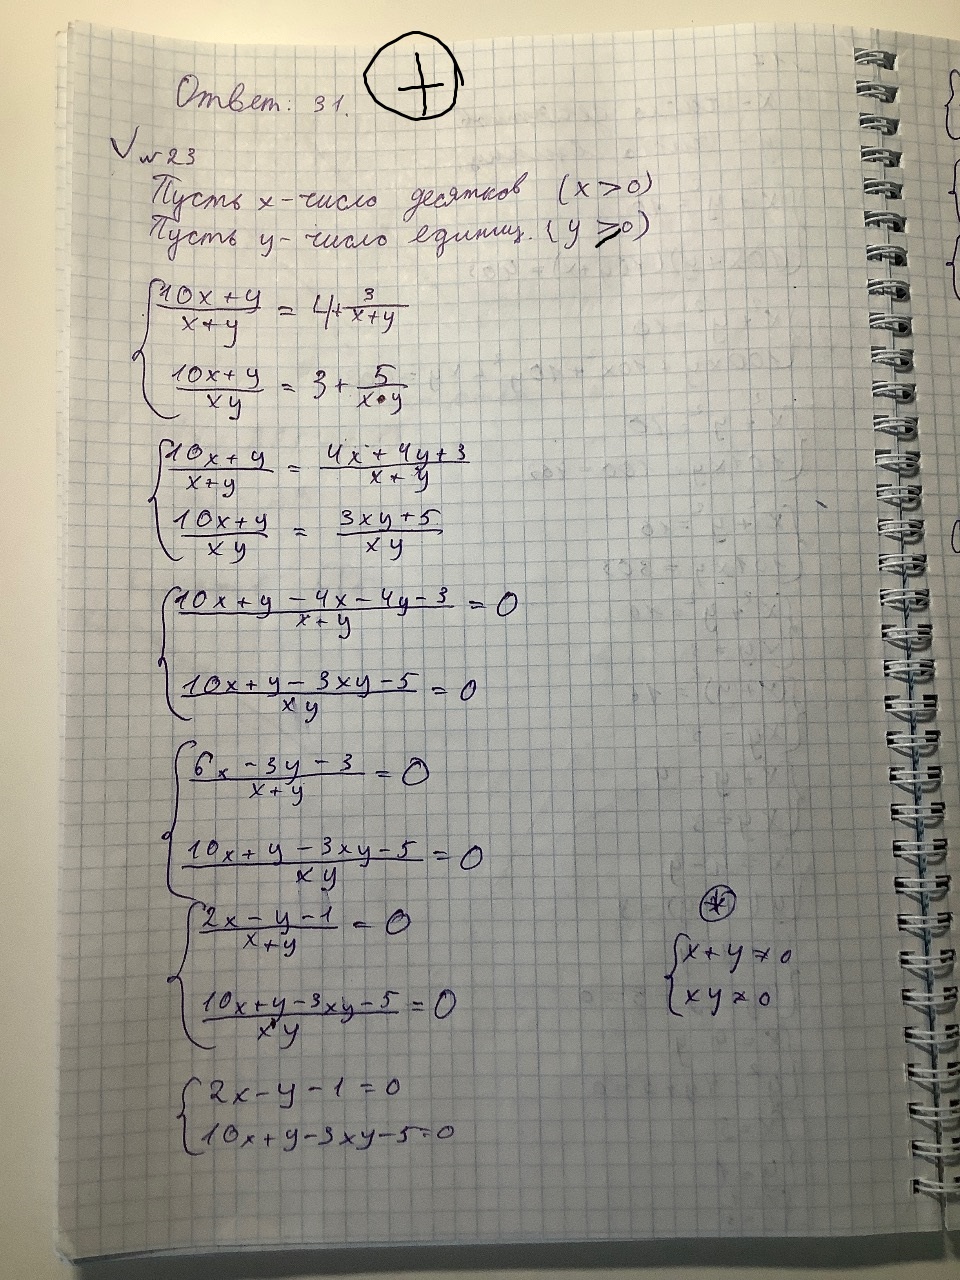 Ответ: 31.
√ №23
Пусть x - число десятков (x > 0)
Пусть y - число единиц. (y ⩾ 0)
{ (10x + y)/(x + y) = 4 + 3/(x + y)
(10x + y)/(xy) = 3 + 5/(x • y)
{ (10x + y)/(x + y) = (4x + 4y + 3)/(x + y)
(10x + y)/(xy) = (3xy + 5)/(xy)
{ (10x + y - 4x - 4y - 3)/(x + y) = 0
(10x + y - 3xy - 5)/(xy) = 0
{ (6x - 3y - 3)/(x + y) = 0
(10x + y - 3xy - 5)/(xy) = 0
{ (2x - y - 1)/(x + y) = 0
(10x + y - 3xy - 5)/(xy) = 0
{ 2x - y - 1 = 0
10x + y - 3xy - 5 = 0
*
{ x + y ≠ 0
xy ≠ 0